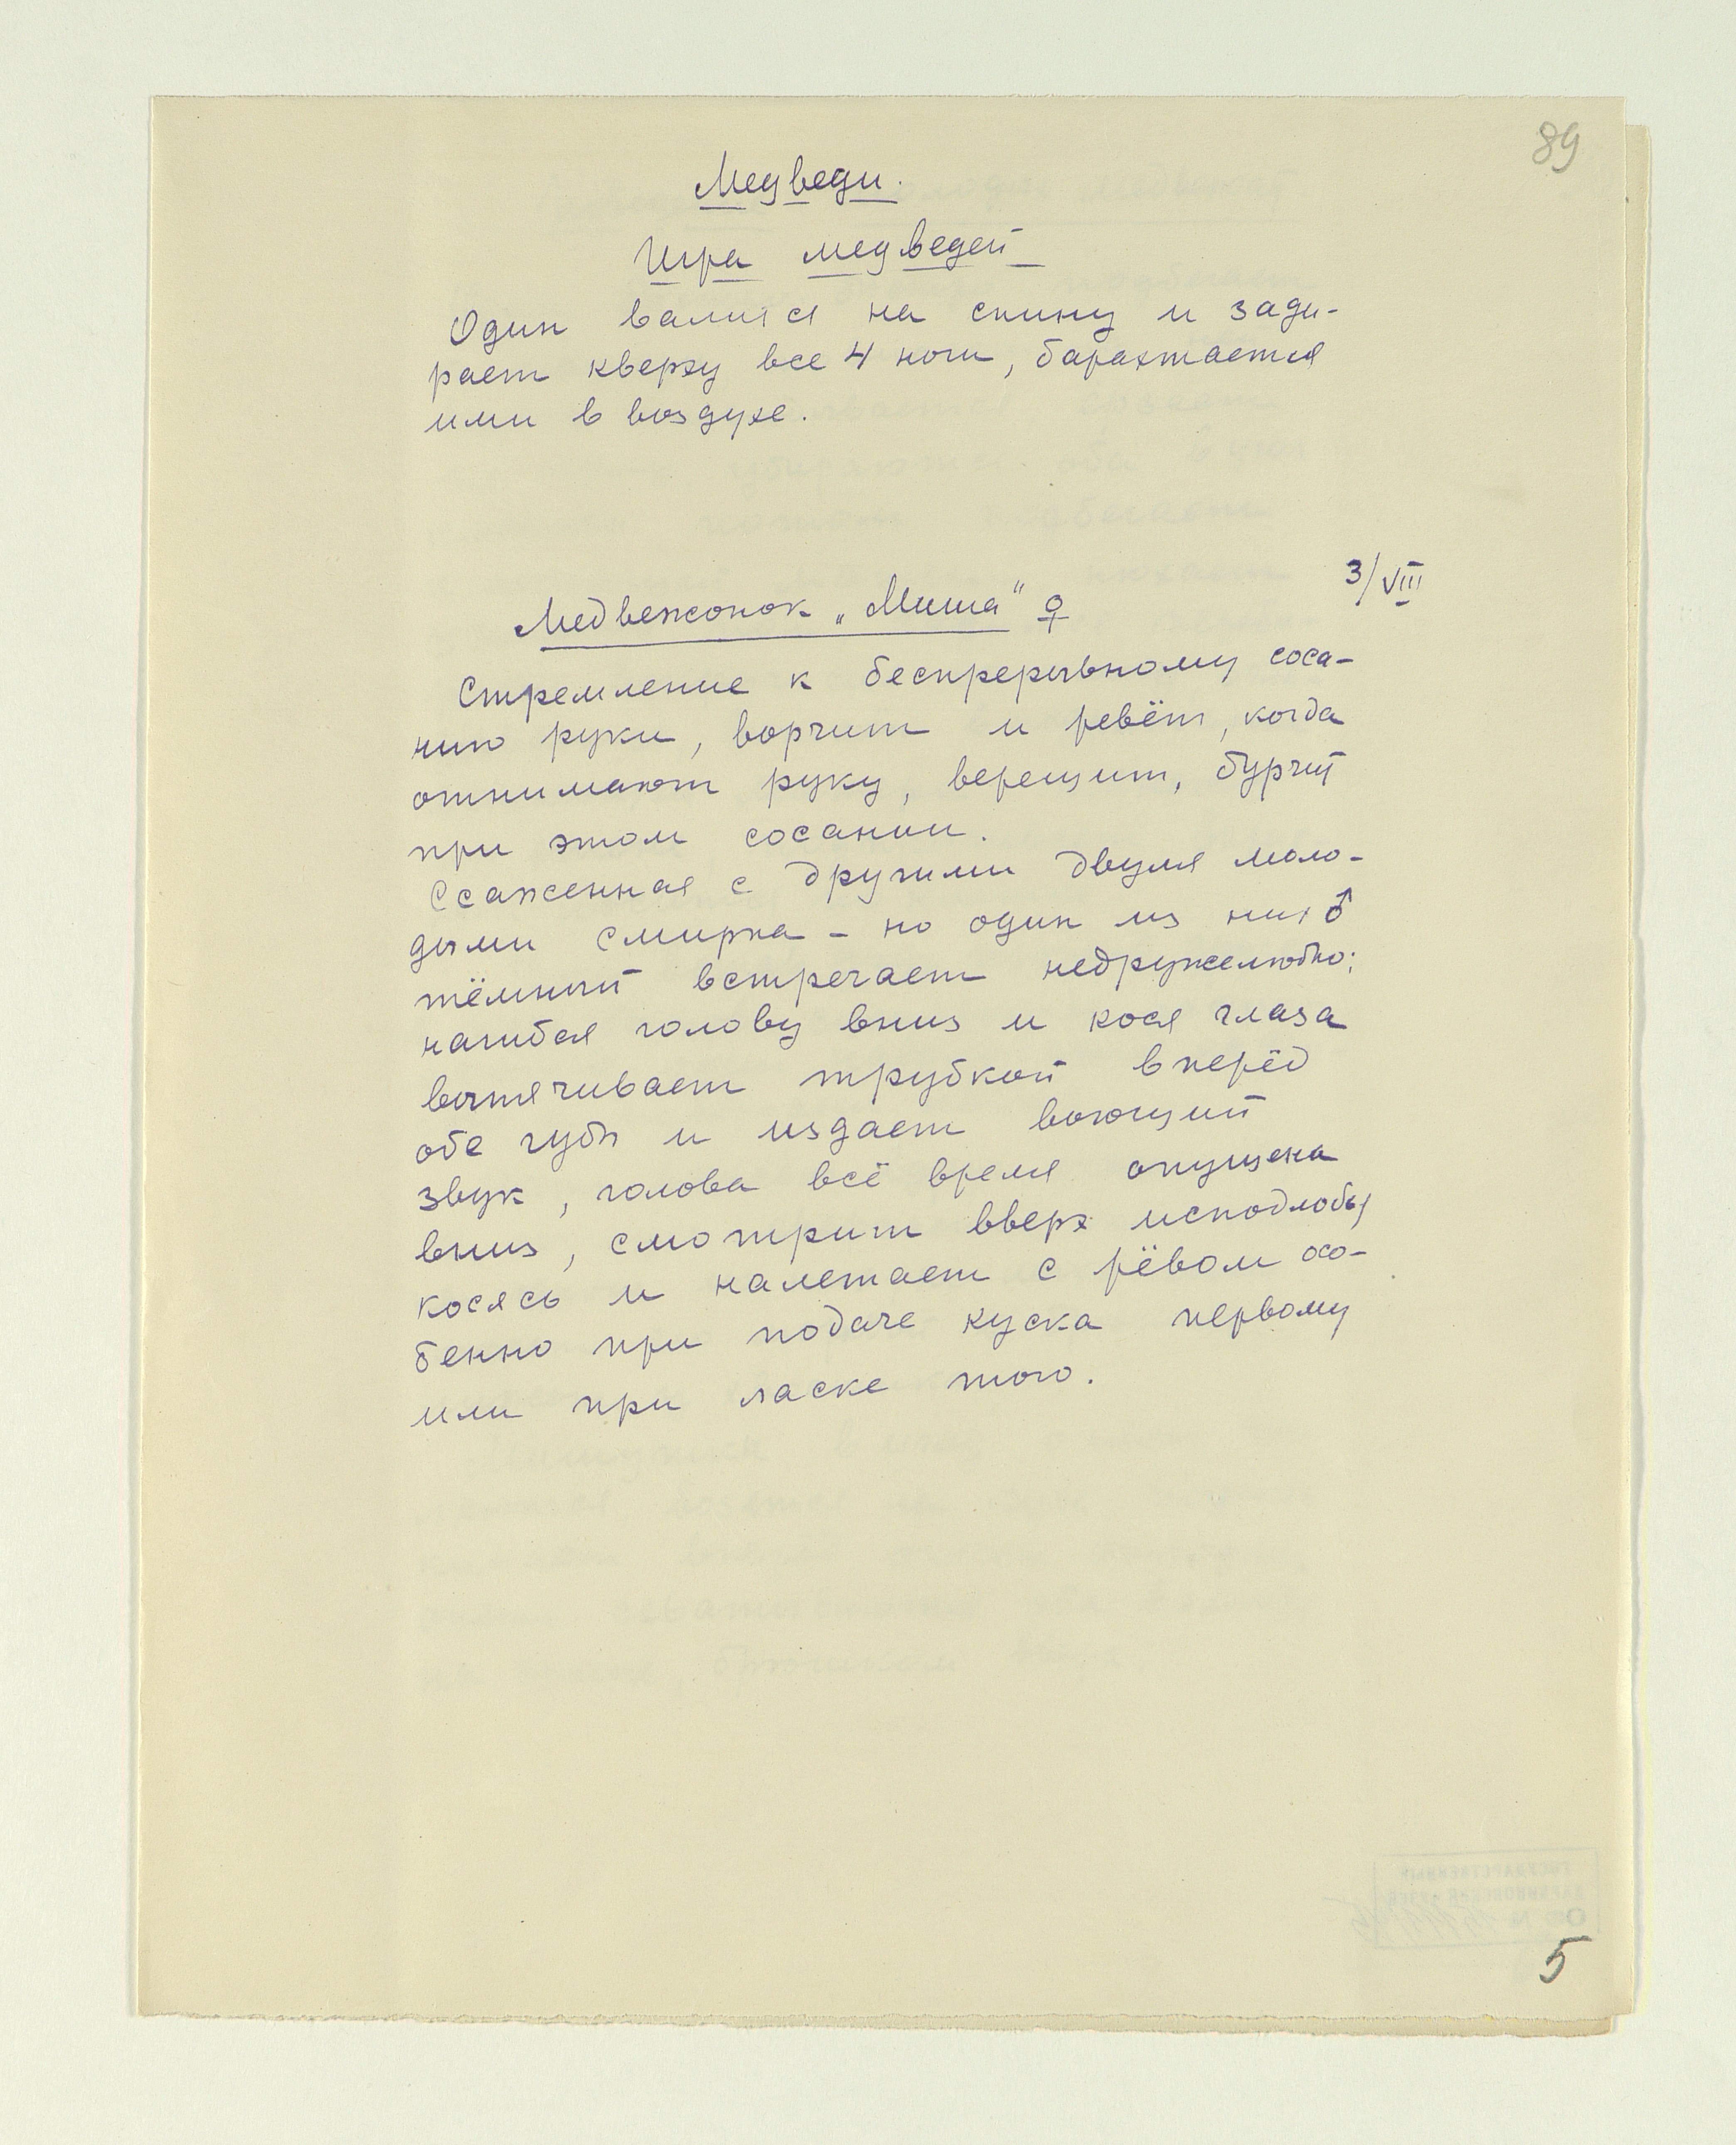 89
Медведи.
Игра медведей
Один валится на спину и зади-
рает кверху все 4 ноги, барахтается
ими в воздухе.
3/VIII
Медвежонок „Миша“ ♀
Стремление к беспрерывному соса-
нию руки, ворчит и ревёт, когда
отнимают руку, верещит, бурчит
при этом сосании.
Ссаженная с другими двумя моло-
дыми смирна – но один из них ♂
тёмный встречает недружелюбно;
нагибая голову вниз и кося глаза
вытягивает трубкой вперёд
обе губы и издает воющий
звук, голова всё время опущена
вниз, смотрит вверх исподлобья
косясь и налетает с рёвом осо-
бенно при подаче куска первому
или при ласке того.
5